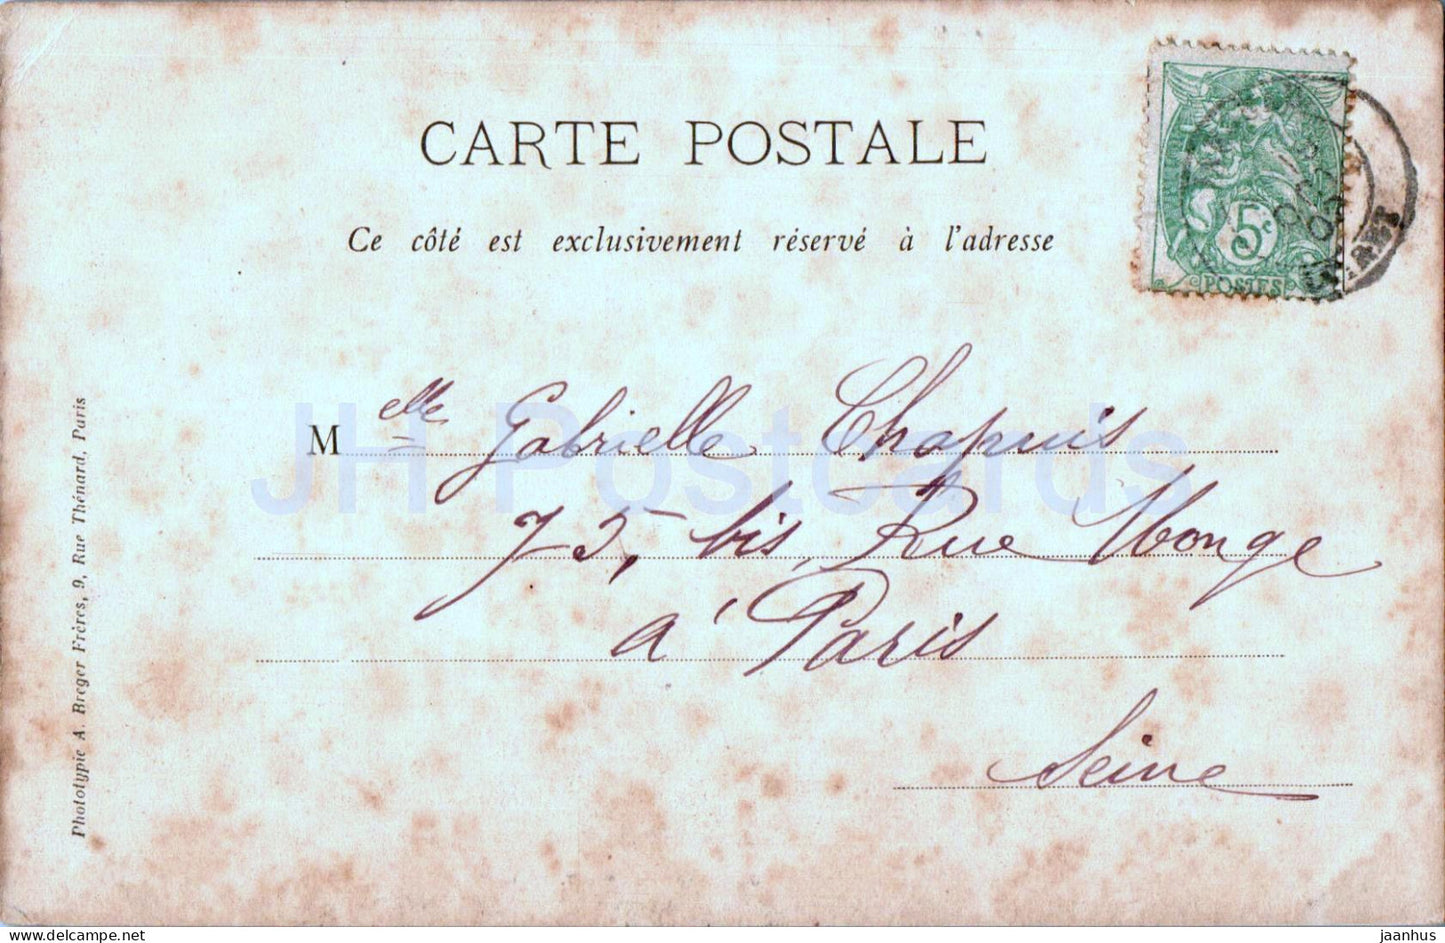 CARTE POSTALE
Ce côté est exclusivement réservé à l'adresse
5c
POSTES
Melle Gabrielle Chapuis
75, bis, Rue Monge
à Paris
Seine
Phototypie A. Breger Frères, 9, Rue Thénard, Paris
JH Postcards
delcampe.net
jaanhus